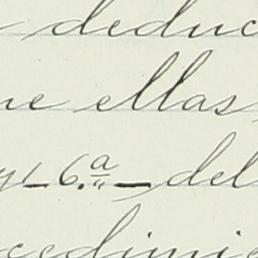 deduc
ue ellas
y 6.ª del
cedimie